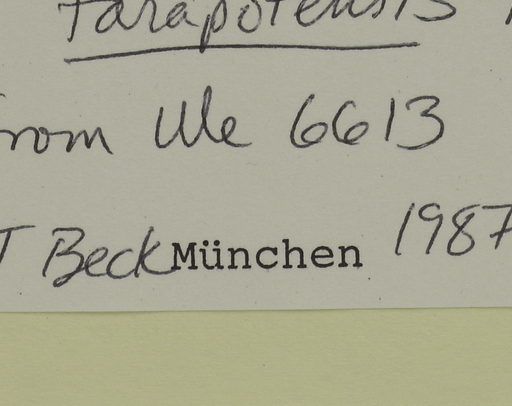 tarapotensis
from Ule 6613
T Beck München 1987